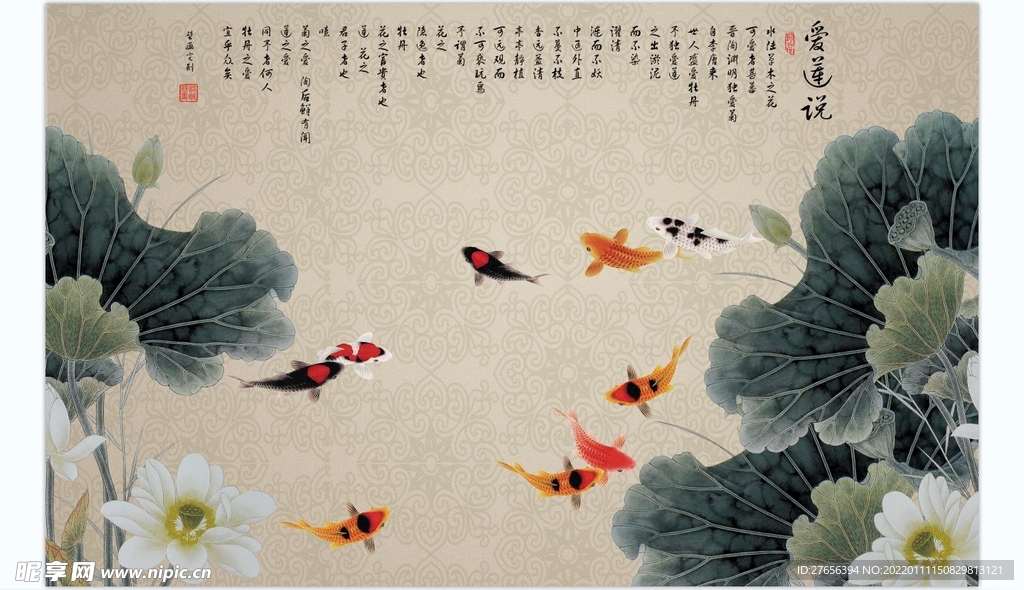 爱莲说
水陆草木之花
可爱者甚蕃
晋陶渊明独爱菊
自李唐来
世人盛爱牡丹
予独爱莲
之出淤泥
而不染
濯清
涟而不妖
中通外直
不蔓不枝
香远益清
亭亭静植
可远观而
不可亵玩焉
予谓菊
花之
隐逸者也
牡丹
花之富贵者也
莲 花之
君子者也
噫
菊之爱 陶后鲜有闻
莲之爱
同予者何人
牡丹之爱
宜乎众矣
昵享网 www.nipic.cn
ID:27656394 NO:20220111150829813121